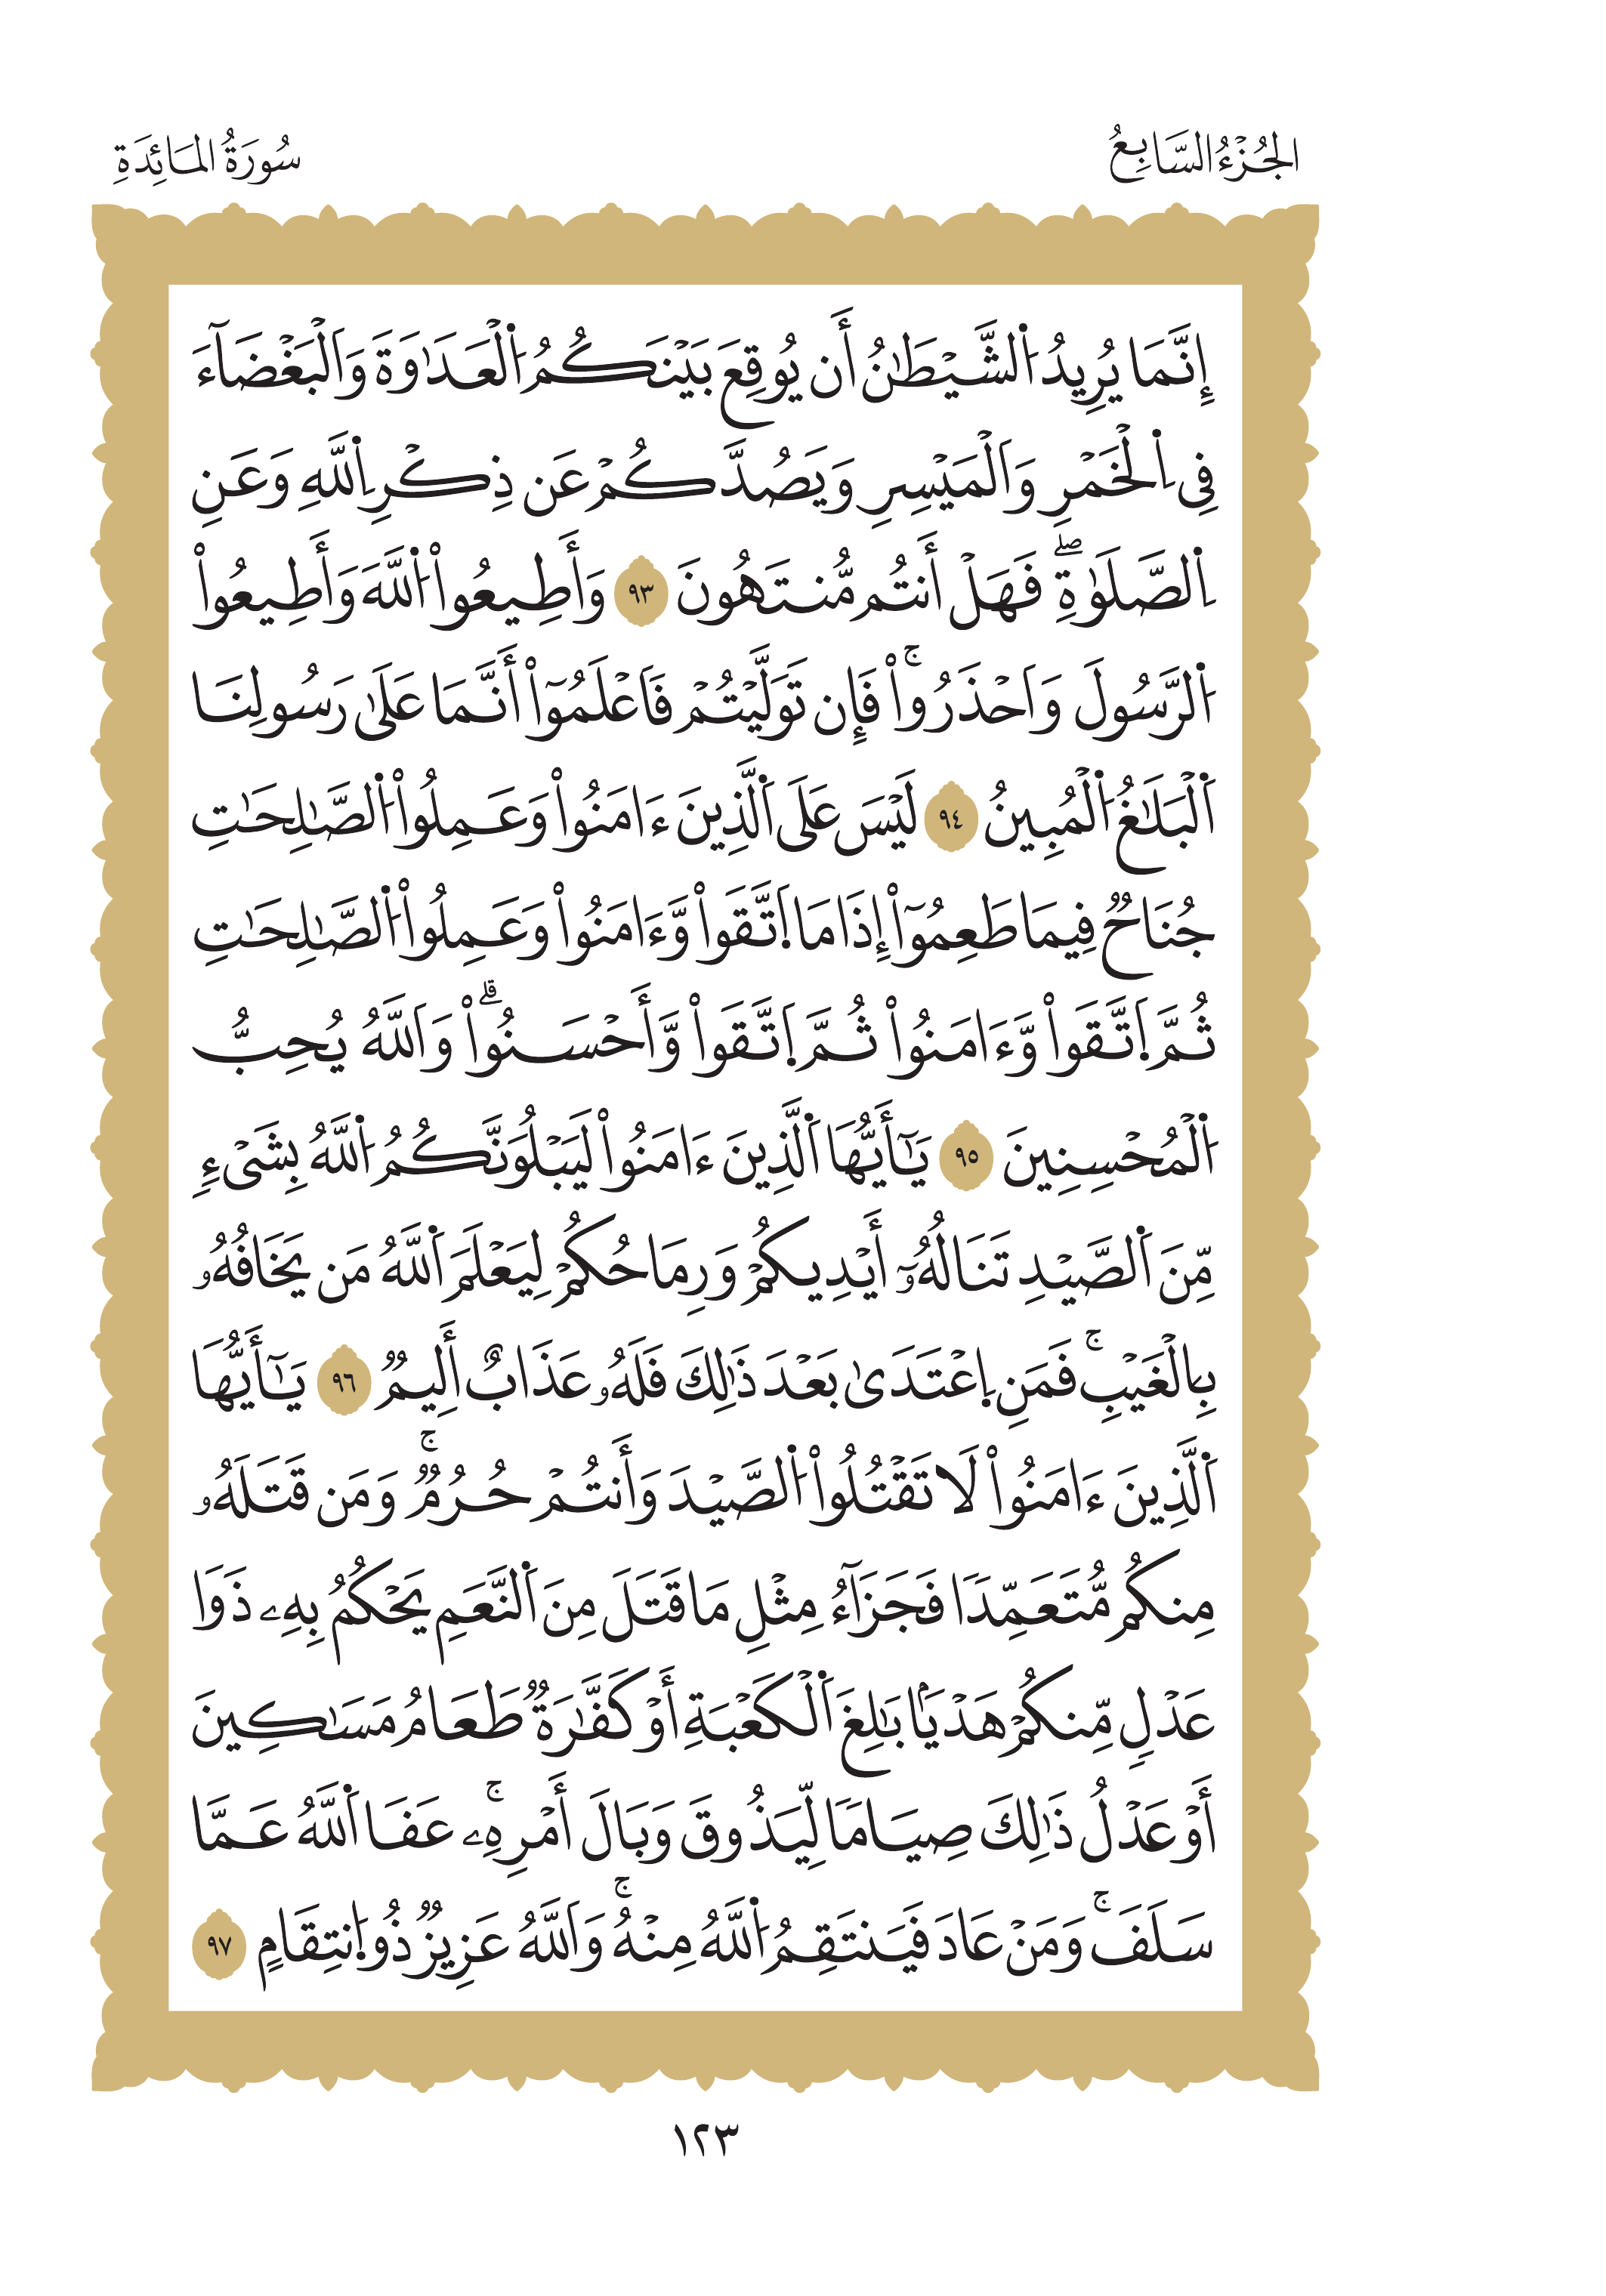 الجُزْءُ السَّابِعُ
سُورَةُ المَائِدَةِ
إِنَّمَا يُرِيدُ اُ۬لشَّيْطَٰنُ أَن يُوقِعَ بَيْنَكُمُ اُ۬لْعَدَٰوَةَ وَالْبَغْضَآءَ
فِي اِ۬لْخَمْرِ وَالْمَيْسِرِ وَيَصُدَّكُمْ عَن ذِكْرِ اِ۬للَّهِ وَعَنِ
اِ۬لصَّلَوٰةِۖ فَهَلْ أَنتُم مُّنتَهُونَ ٩٣ وَأَطِيعُواْ اُ۬للَّهَ وَأَطِيعُواْ
اُ۬لرَّسُولَ وَاحْذَرُواْۚ فَإِن تَوَلَّيْتُمْ فَاعْلَمُوٓاْ أَنَّمَا عَلَىٰ رَسُولِنَا
اَ۬لْبَلَٰغُ اُ۬لْمُبِينُ ٩٤ لَيْسَ عَلَى اَ۬لَّذِينَ ءَامَنُواْ وَعَمِلُواْ اُ۬لصَّٰلِحَٰتِ
جُنَاحٌ فِيمَا طَعِمُوٓاْ إِذَا مَا اَ۪تَّقَواْ وَّءَامَنُواْ وَعَمِلُواْ اُ۬لصَّٰلِحَٰتِ
ثُمَّ اَ۪تَّقَواْ وَّءَامَنُواْ ثُمَّ اَ۪تَّقَواْ وَّأَحْسَنُواْۗ وَاللَّهُ يُحِبُّ
اُ۬لْمُحْسِنِينَ ٩٥ يَٰٓأَيُّهَا اَ۬لَّذِينَ ءَامَنُواْ لَيَبْلُوَنَّكُمُ اُ۬للَّهُ بِشَيْءٍ
مِّنَ اَ۬لصَّيْدِ تَنَالُهُۥٓ أَيْدِيكُمْ وَرِمَاحُكُمْ لِيَعْلَمَ اَ۬للَّهُ مَن يَخَافُهُۥ
بِالْغَيْبِۚ فَمَنِ اِ۪عْتَدَىٰ بَعْدَ ذَٰلِكَ فَلَهُۥ عَذَابٌ أَلِيمٌ ٩٦ يَٰٓأَيُّهَا
اَ۬لَّذِينَ ءَامَنُواْ لَا تَقْتُلُواْ اُ۬لصَّيْدَ وَأَنتُمْ حُرُمٌۚ وَمَن قَتَلَهُۥ
مِنكُم مُّتَعَمِّدًا فَجَزَآءُ مِثْلِ مَا قَتَلَ مِنَ اَ۬لنَّعَمِ يَحْكُمُ بِهِۦ ذَوَا
عَدْلٍ مِّنكُمْ هَدْيَۢا بَٰلِغَ اَ۬لْكَعْبَةِ أَوْ كَفَّٰرَةٌ طَعَامُ مَسَٰكِينَ
أَوْ عَدْلُ ذَٰلِكَ صِيَامًا لِّيَذُوقَ وَبَالَ أَمْرِهِۦۚ عَفَا اَ۬للَّهُ عَمَّا
سَلَفَۚ وَمَنْ عَادَ فَيَنتَقِمُ اُ۬للَّهُ مِنْهُۚ وَاللَّهُ عَزِيزٌ ذُو اُ۪نتِقَامٍ ٩٧
١٢٣